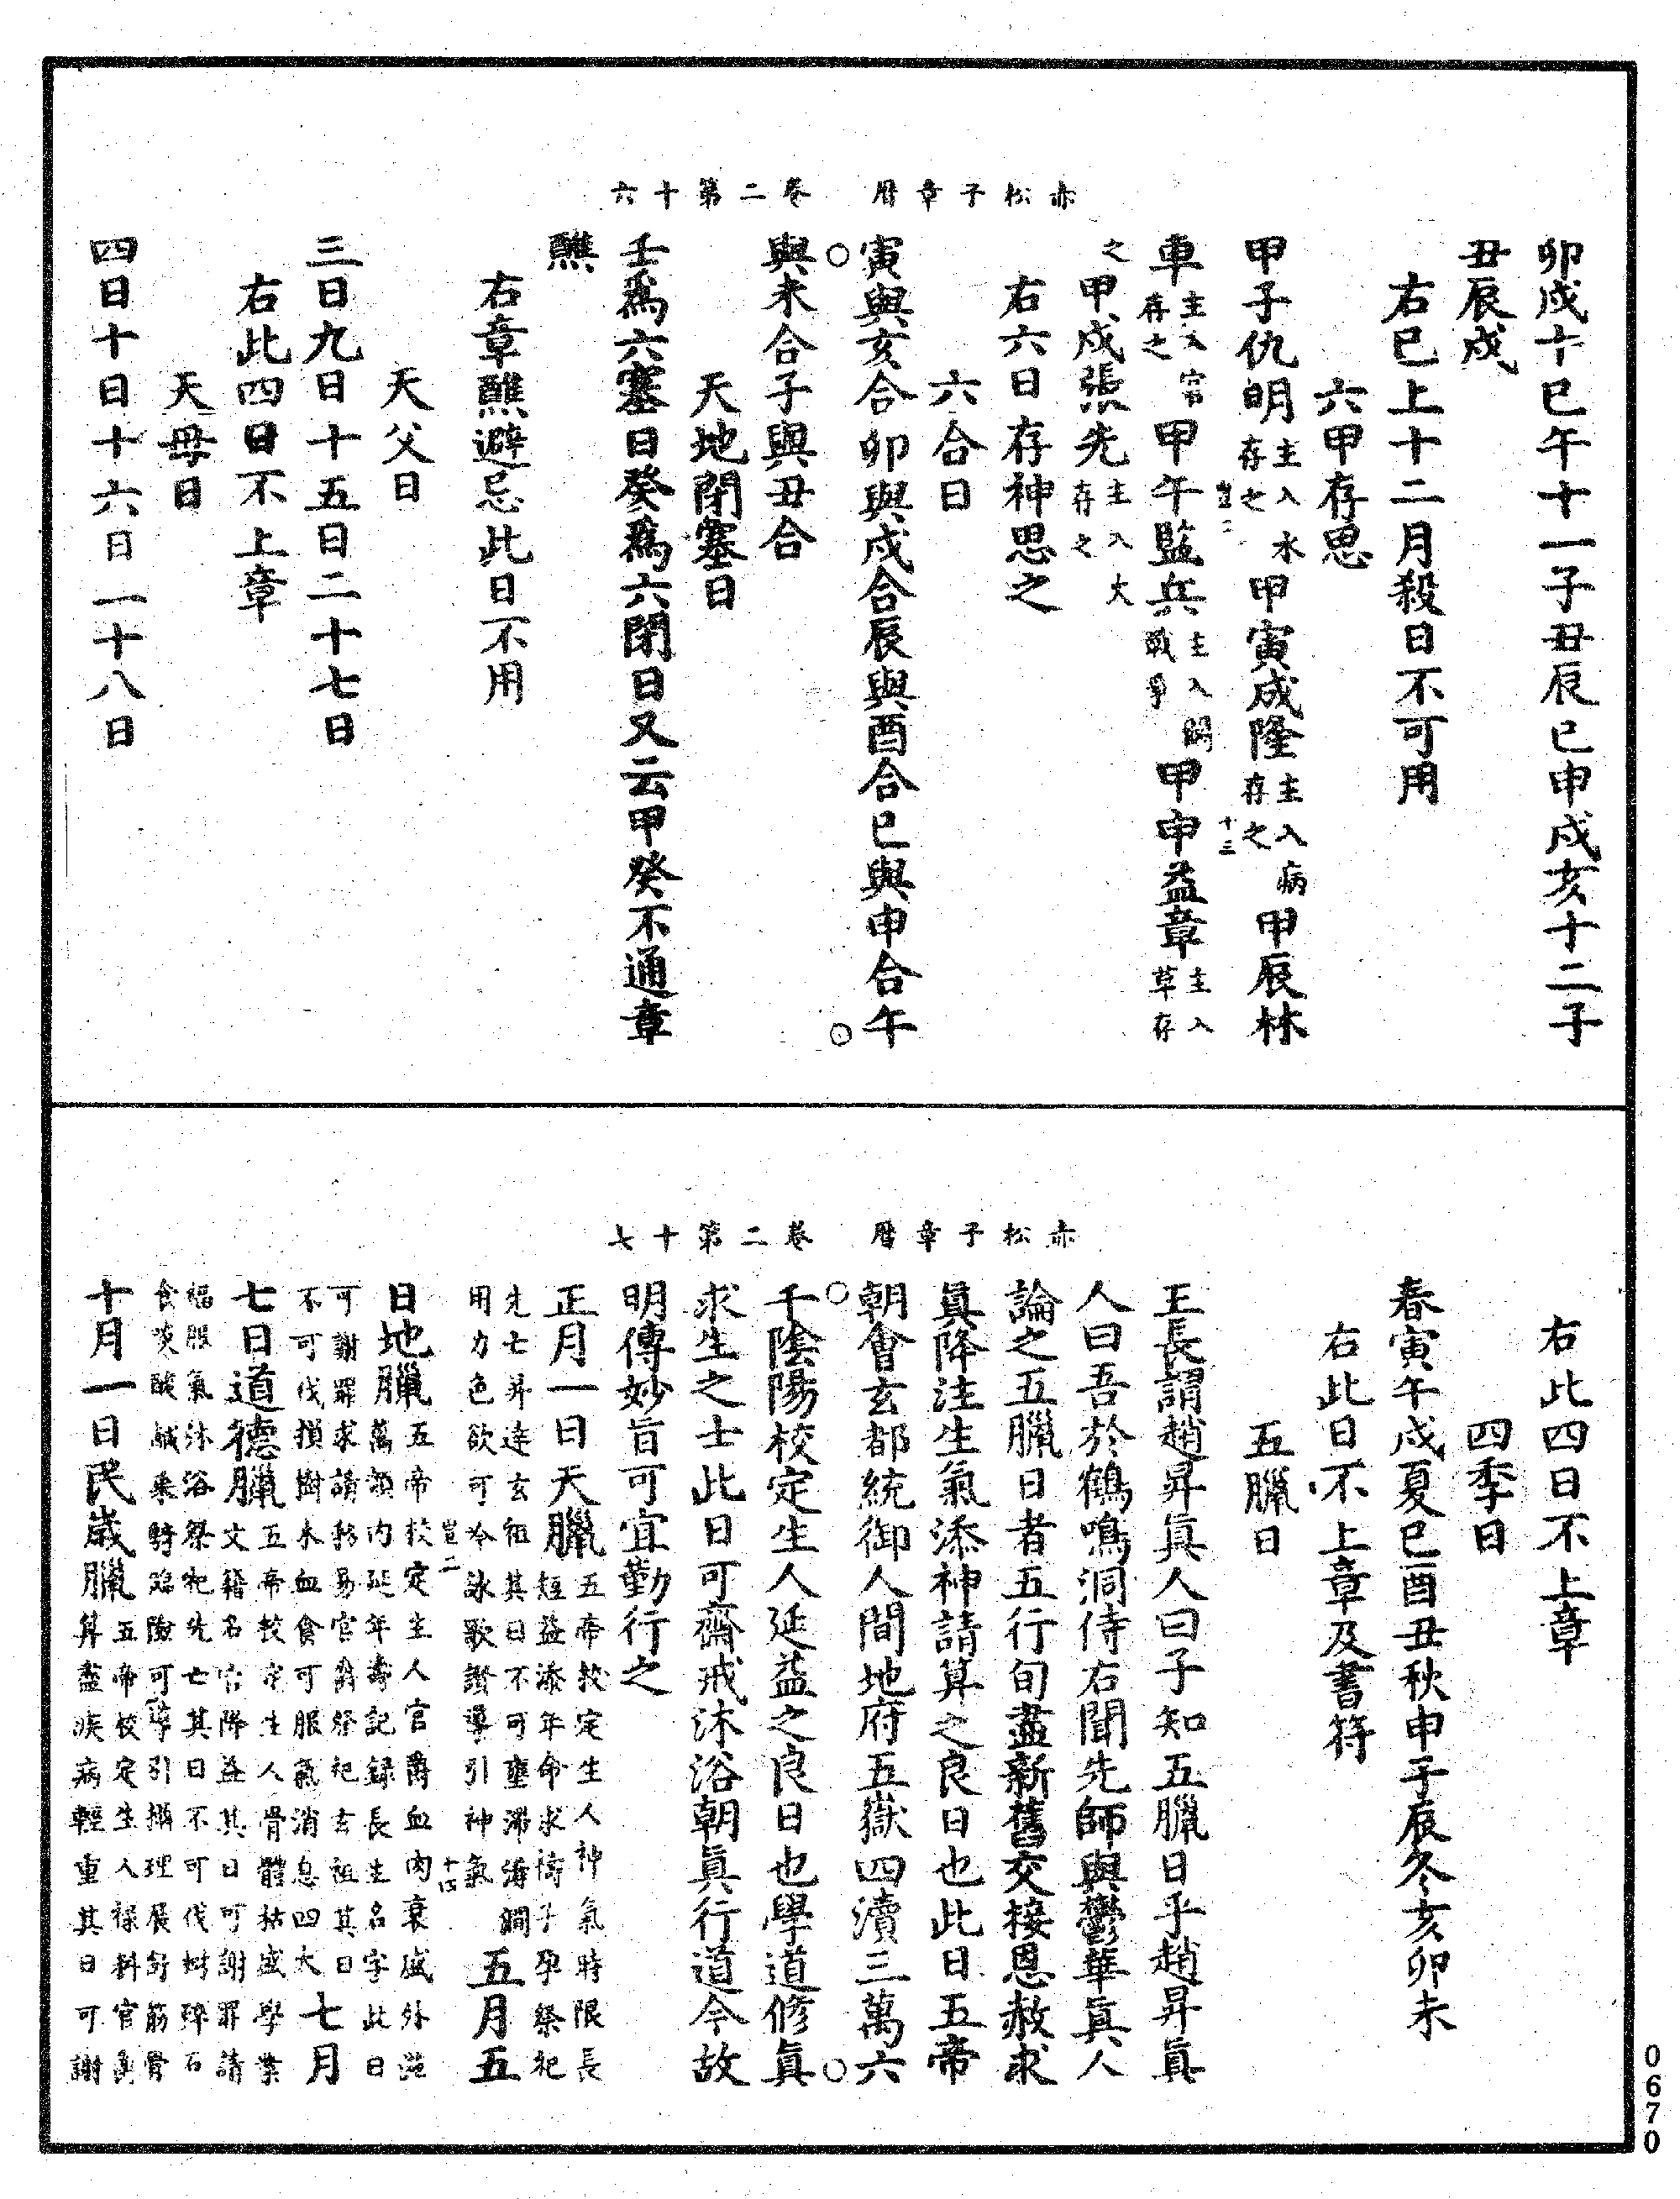 赤松子章曆　卷二第十六
卯戌十巳午十一子丑辰巳申戌亥十二子
丑辰戌
右已上十二月殺日不可用
六甲存思
甲子仇明主入水存之甲寅成隆主入病存之甲辰林
車主入官存之甲午監兵主入鬭戰爭甲申益章主入草存
之甲戌張先主入大存之
右六日存神思之
六合日
寅與亥合卯與戌合辰與酉合巳與申合午
與未合子與丑合
天地閉塞日
壬為六塞日癸為六閉日又云甲癸不通章
醮
右章醮避忌此日不用
天父日
三日九日十五日二十七日
右此四日不上章
天母日
四日十日十六日一十八日
赤松子章曆　卷二第十七
右此四日不上章
四季日
春寅午戌夏巳酉丑秋申子辰冬亥卯未
右此日不上章及書符
五臘日
王長謂趙昇真人曰子知五臘日乎趙昇真
人曰吾於鶴鳴洞侍右聞先師與鬱華真人
論之五臘日者五行旬盡新舊交接恩赦求
真降注生氣添神請算之良日也此日五帝
朝會玄都統御人間地府五嶽四瀆三萬六
千陰陽校定生人延益之良日也學道修真
求生之士此日可齋戒沐浴朝真行道今故
明傳妙旨可宜勤行之
正月一日天臘五帝校定生人神氣時限長短益添年命求禱子孕祭祀
先亡昇達玄祖其日不可壅滯溝澗用力色欲可冷詠歌讚導引神氣五月五
日地臘五帝校定生人官爵血肉衰盛外滋萬類內延年壽記錄長生名字此日
可謝罪求請移易官爵祭祀玄祖其日不可伐損樹木血食可服氣消息四大七月
七日道德臘五帝校定生人骨體枯盛學業文籍名官降益其日可謝罪請
福服氣沐浴祭祀先亡其日不可伐樹碎石食啖酸鹹乘騎臨險可導引攝理展舒筋骨
十月一日民歲臘五帝校定生人祿料官算盡疾病輕重其日可謝
0670